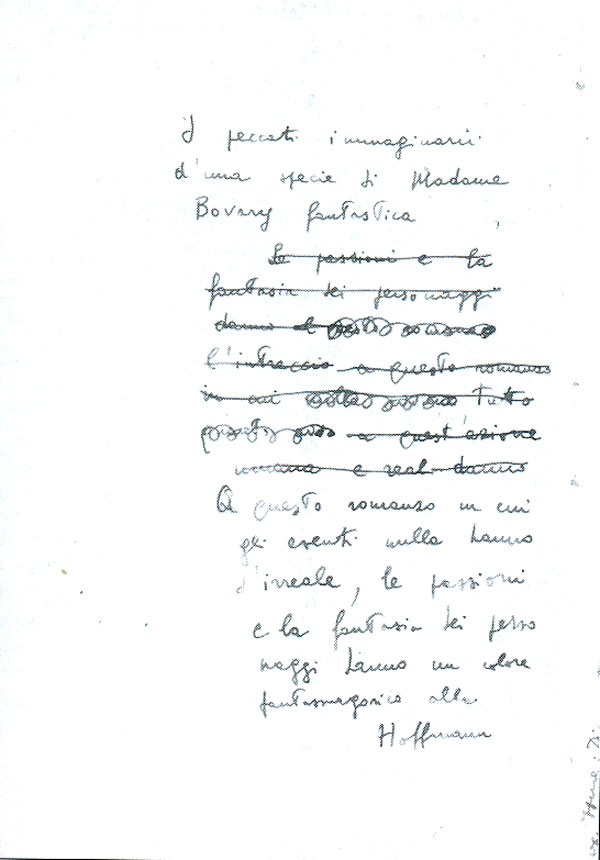 I peccati immaginarii
d'una specie di Madame
Bovary fantastica
Le passioni e la
fantasia dei personaggi
danno
l'intreccio a questo romanzo
in cui tutto
a quest'azione
romana e real danno
A questo romanzo in cui
gli eventi nulla hanno
d'irreale, le passioni
e la fantasia dei perso
naggi danno un colore
fantasmagorico alla
Hoffmann